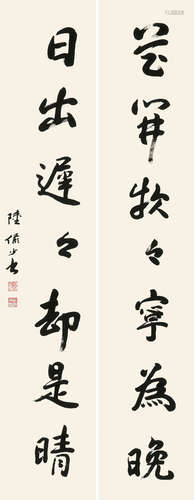 花開對々寧為晚
日出遲々却是晴
陸儼少書